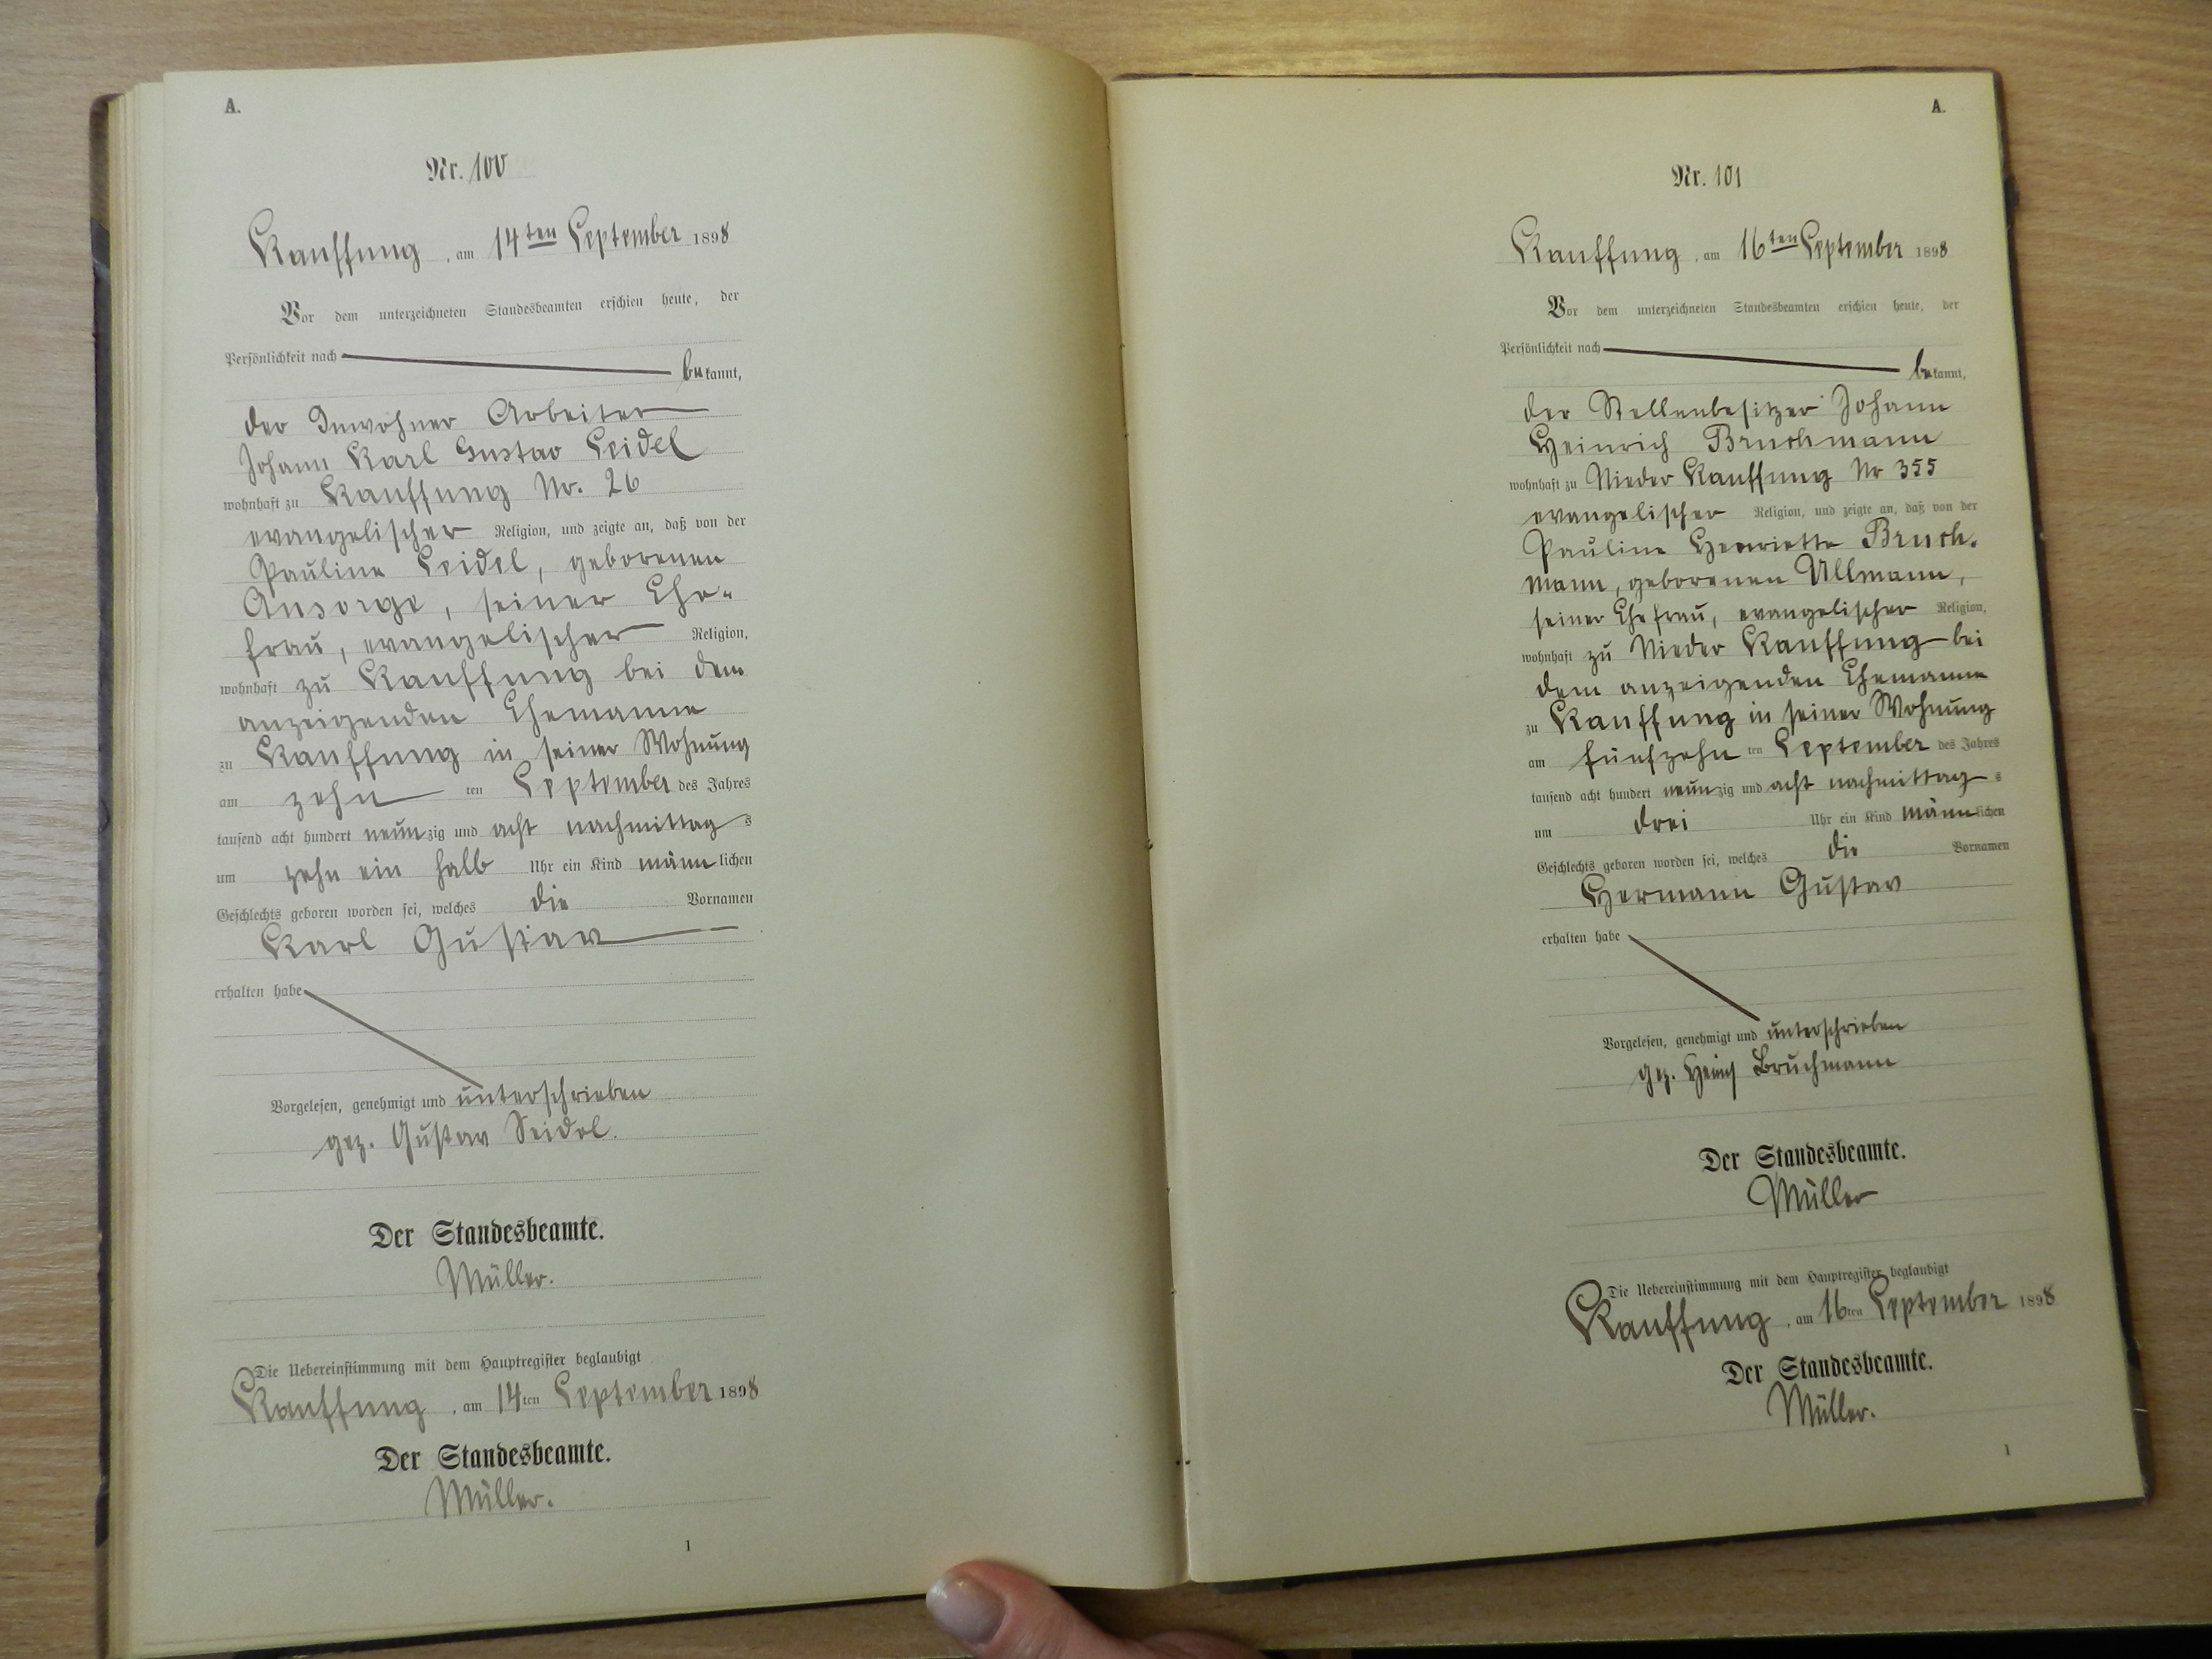 A.
Nr. 100
Kauffung, am 14ten September 1898
Vor dem unterzeichneten Standesbeamten erschien heute, der
Persönlichkeit nach
bekannt,
der Inwohner Arbeiter
Johann Karl Gustav Seidel
wohnhaft zu Kauffung Nr. 26
evangelischer Religion, und zeigte an, daß von der
Pauline Seidel, geborenen
Ansorge, seiner Ehe-
frau, evangelischer Religion,
wohnhaft zu Kauffung bei dem
anzeigenden Ehemanne
zu Kauffung in seiner Wohnung
am zehn ten September des Jahres
tausend acht hundert neunzig und acht nachmittags
um zehn ein halb Uhr ein Kind männlichen
Geschlechts geboren worden sei, welches die Vornamen
Karl Gustav
erhalten habe
Vorgelesen, genehmigt und unterschrieben
gez. Gustav Seidel.
Der Standesbeamte.
Müller.
Die Uebereinstimmung mit dem Hauptregister beglaubigt
Kauffung, am 14ten September 1898
Der Standesbeamte.
Müller.
1
A.
Nr. 101
Kauffung, am 16ten September 1898
Vor dem unterzeichneten Standesbeamten erschien heute, der
Persönlichkeit nach
bekannt,
der Stellenbesitzer Johann
Heinrich Bruchmann
wohnhaft zu Nieder Kauffung Nr 355
evangelischer Religion, und zeigte an, daß von der
Pauline Henriette Bruch-
mann, geborenen Ullmann,
seiner Ehefrau, evangelischer Religion,
wohnhaft zu Nieder Kauffung bei
dem anzeigenden Ehemanne
zu Kauffung in seiner Wohnung
am fünfzehn ten September des Jahres
tausend acht hundert neunzig und acht nachmittags
um drei Uhr ein Kind männlichen
Geschlechts geboren worden sei, welches die Vornamen
Hermann Gustav
erhalten habe
Vorgelesen, genehmigt und unterschrieben
gez. Heinr Bruchmann
Der Standesbeamte.
Müller
Die Uebereinstimmung mit dem Hauptregister beglaubigt
Kauffung, am 16ten September 1898
Der Standesbeamte.
Müller.
1